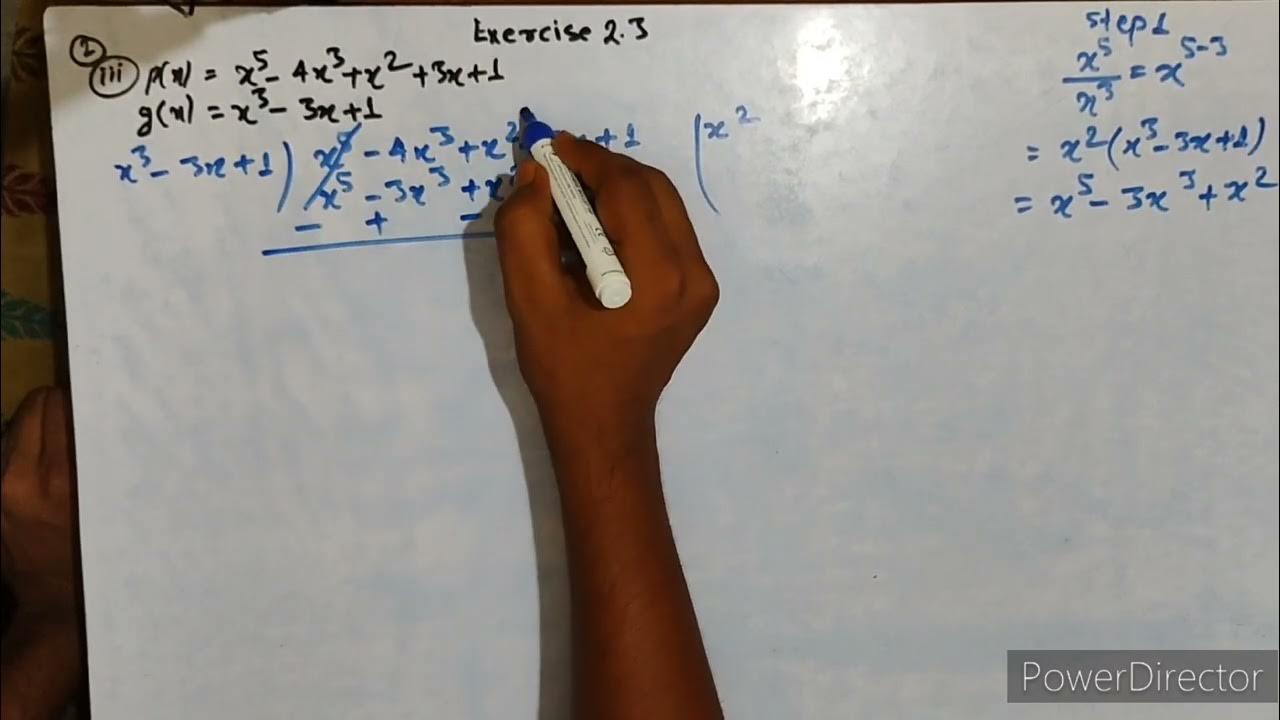 Exercise 2.3
1
iii p(x) = x⁵ - 4x³ + x² + 3x + 1
g(x) = x³ - 3x + 1
x³ - 3x + 1 ) x⁵ - 4x³ + x² x + 1 ( x²
x⁵ - 3x³ + x²
- + -
Step 1
x⁵/x³ = x⁵⁻³
= x² (x³ - 3x + 1)
= x⁵ - 3x³ + x²
PowerDirector